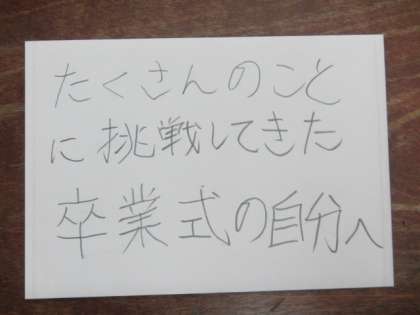 たくさんのこと
に挑戦してきた
卒業式の自分へ